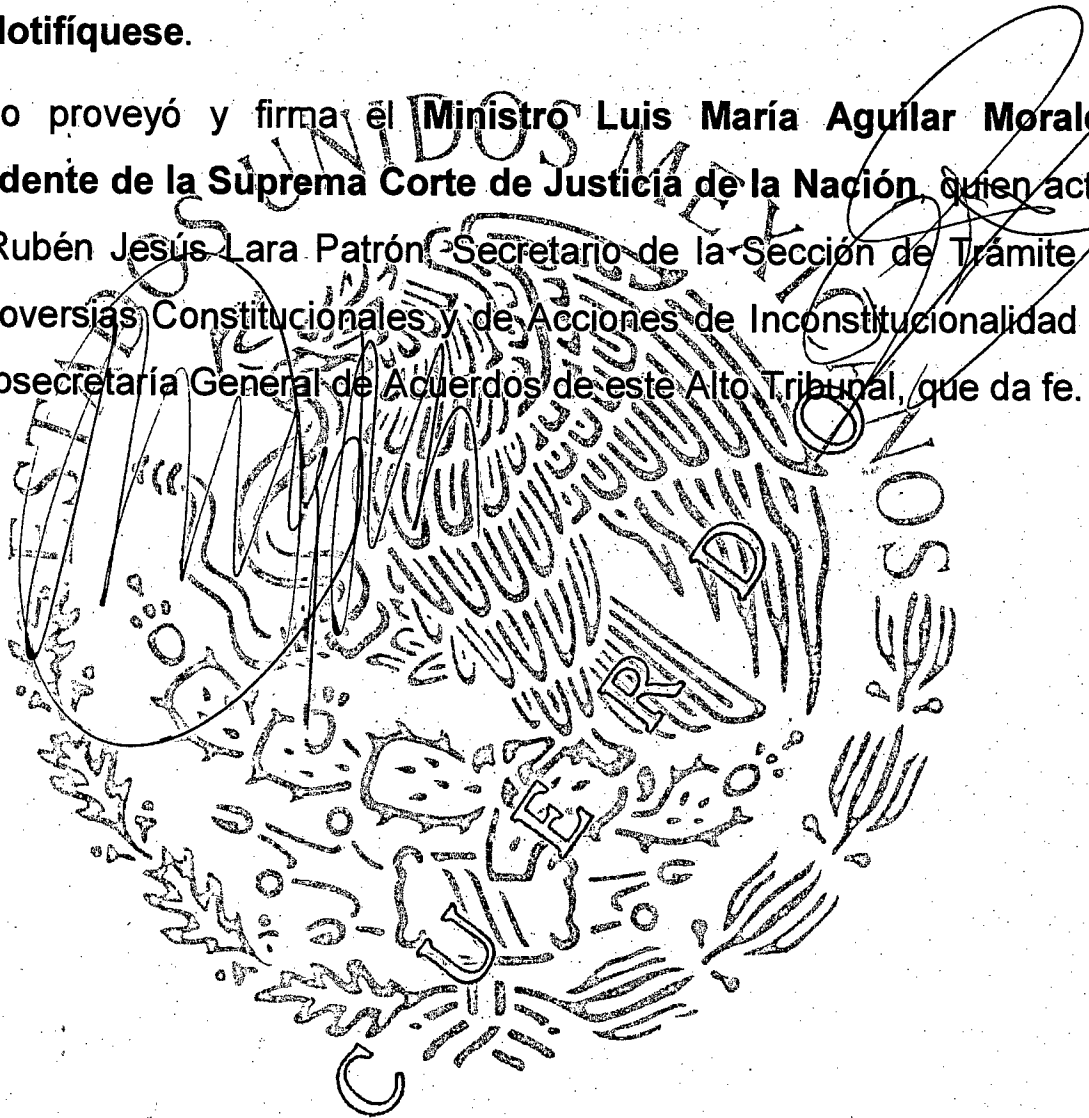 lotifíquese.
o proveyó y firma el Ministro Luis María Aguilar Morale
dente de la Suprema Corte de Justicia de la Nación, quien act
Rubén Jesús Lara Patrón, Secretario de la Sección de Trámite
oversias Constitucionales y de Acciones de Inconstitucionalidad
osecretaría General de Acuerdos de este Alto Tribunal, que da fe.
ESTADOS UNIDOS MEXICANOS
C U E R D O